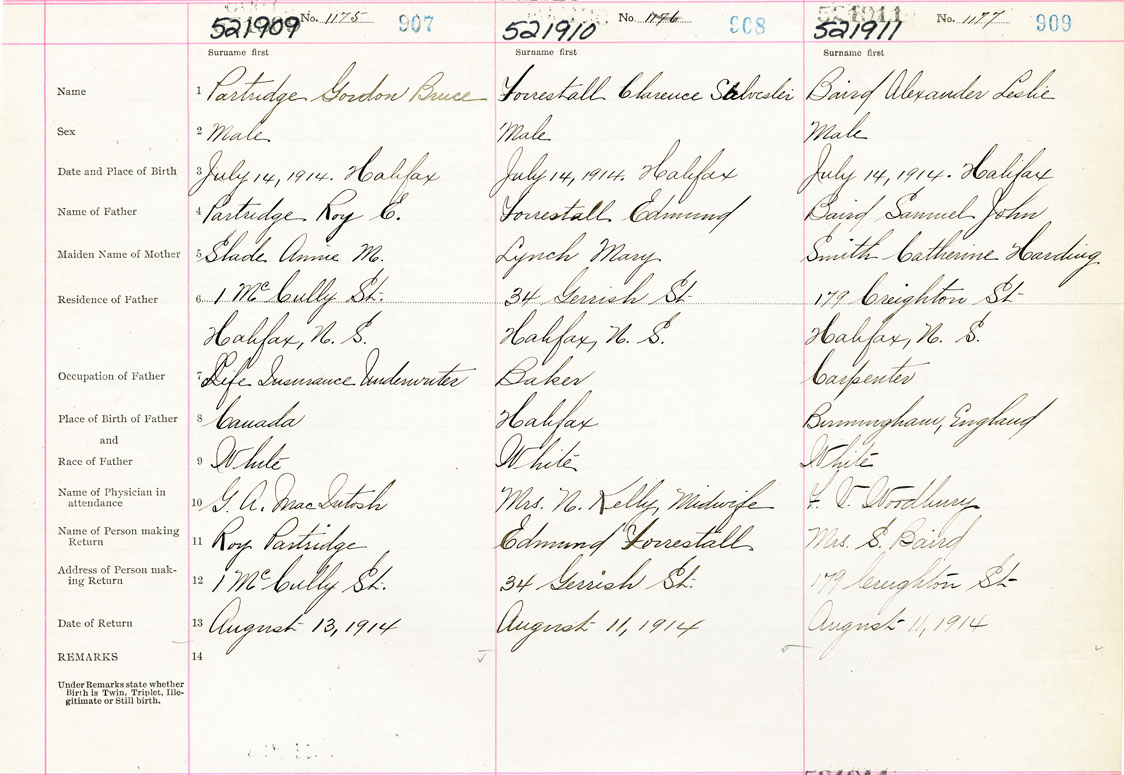 521909 No. 1175 907
521910 No 1176 908
521911 No. 1177 909
Surname first Surname first Surname first
Name 1 Partridge Gordon Bruce Forrestall Clarence Sylvester Baird Alexander Leslie
Sex 2 Male Male Male
Date and Place of Birth 3 July 14, 1914. Halifax July 14, 1914. Halifax July 14, 1914. Halifax
Name of Father 4 Partridge Roy E. Forrestall Edmund Baird Samuel John
Maiden Name of Mother 5 Slade Annie M. Lynch Mary Smith Catherine Harding
Residence of Father 6 1 McCully St. 34 Gerrish St 179 Creighton St
Halifax, N. S. Halifax, N. S. Halifax, N. S.
Occupation of Father 7 Life Insurance Underwriter Baker Carpenter
Place of Birth of Father 8 Canada Halifax Birmingham, England
and
Race of Father 9 White White White
Name of Physician in
attendance 10 G. A. MacIntosh Mrs. N. Kelly, Midwife F. V. Woodbury
Name of Person making
Return 11 Roy Partridge Edmund Forrestall Mrs. S. Baird
Address of Person mak-
ing Return 12 1 McCully St. 34 Gerrish St. 179 Creighton St
Date of Return 13 August 13, 1914 August 11, 1914 August 11, 1914
REMARKS 14
Under Remarks state whether
Birth is Twin, Triplet, Ille-
gitimate or Still birth.